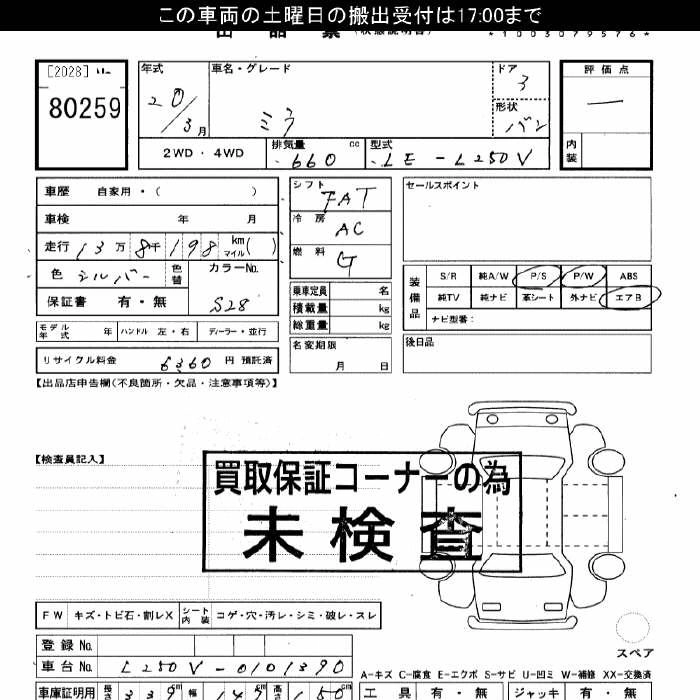 この車両の土曜日の搬出受付は17:00まで
*1003079576*
[2028]
80259
年式
20/3月
車名・グレード
ミラ
ドア
3
形状
バン
評価点
—
内装
2WD・4WD
排気量 cc
660
型式
LE-L250V
車歴 自家用・( )
車検 年 月
走行 13万8千198 km マイル( )
色 シルバー 色替
カラーNo.
S28
保証書 有・無
モデル年式 年 ハンドル 左・右 ディーラー・並行
リサイクル料金 6360 円 預託済
シフト FAT
冷房 AC
燃料 G
乗車定員 名
積載量 kg
総重量 kg
名変期限
月 日
セールスポイント
装備品
S/R 純A/W P/S P/W ABS
純TV 純ナビ 革シート 外ナビ エアB
ナビ型番:
後日品
【出品店申告欄(不良箇所・欠品・注意事項等)】
【検査員記入】
買取保証コーナーの為
未検査
FW キズ・トビ石・割レX シート内装 コゲ・穴・汚レ・シミ・破レ・スレ
登録No.
車台No. L250V-0101390
スペア
A-キズ C-腐食 E-エクボ S-サビ U-凹ミ W-補修 XX-交換済
車庫証明用 長さ 339cm 幅 147cm 高さ 150cm
工具 有・無 ジャッキ 有・無